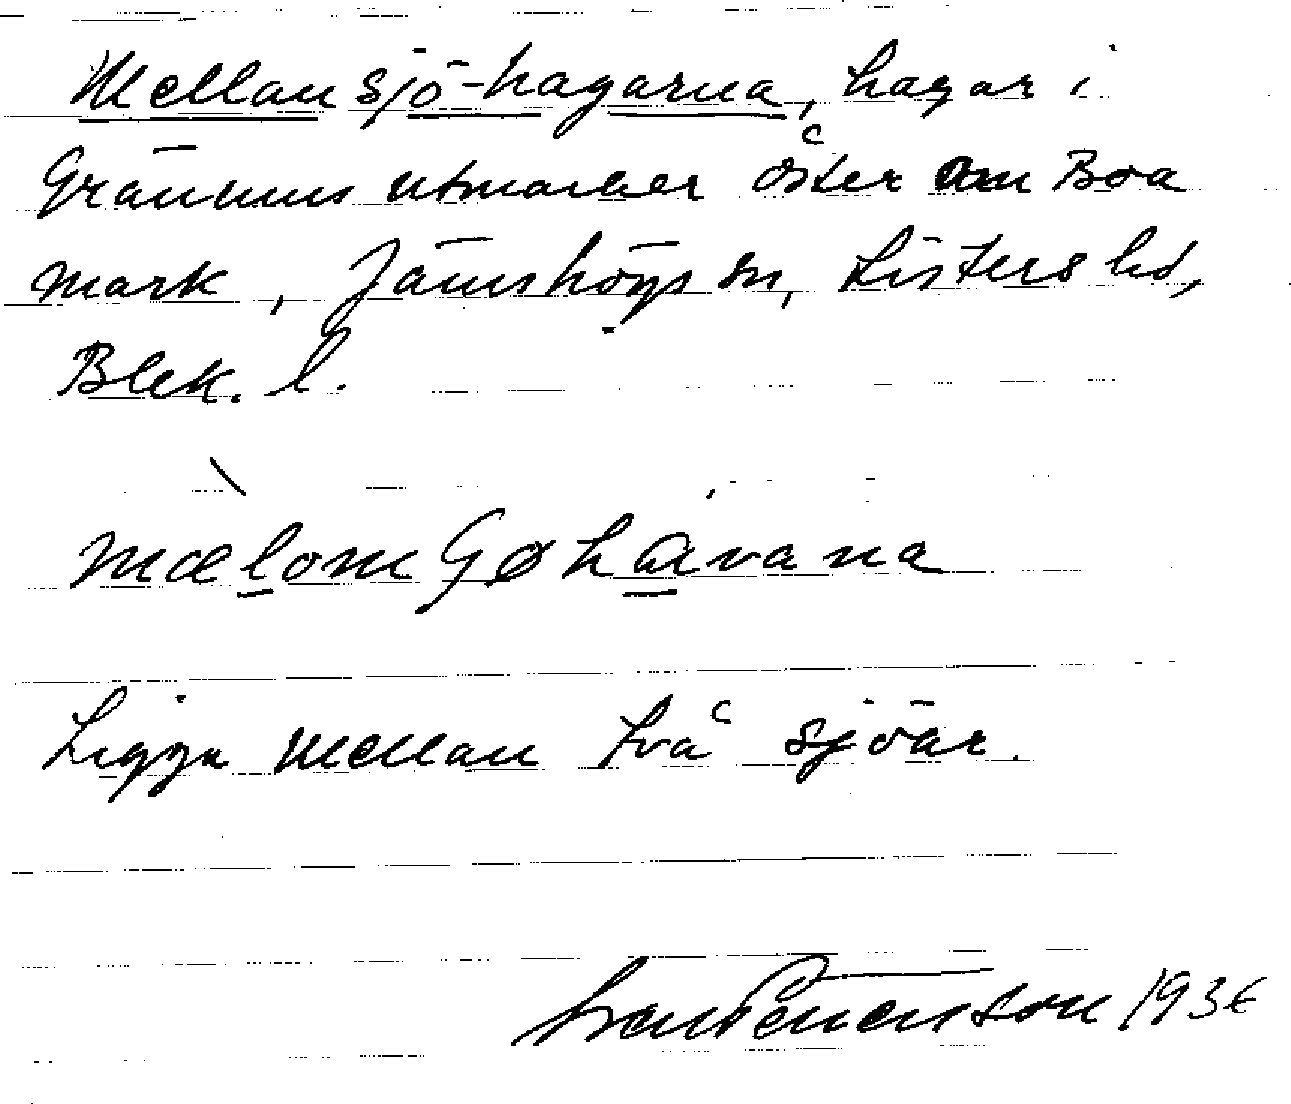 Mellansjö-hagarna, hagar i
Grännums utmarker öster om Boa
mark, Jämshögs sn, Listers hd,
Blek. l.
mælomGøhavana
Ligga mellan två sjöar.
1936